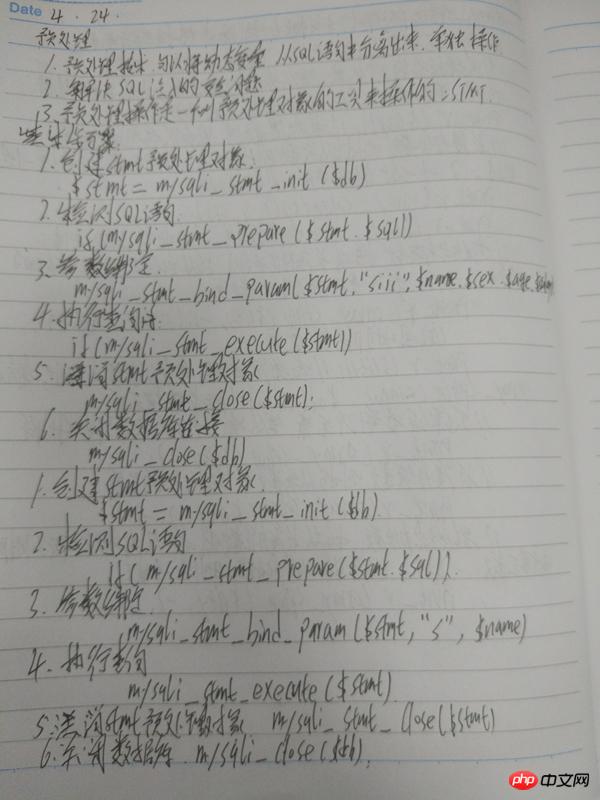 Date 4 . 24 .
预处理
1. 预处理技术 可以将动态变量 从SQL语句中分离出来. 单独操作
2. 解决SQL注入的安全问题
3. 预处理操作是一个叫预处理对象的工具来操作的:STMT
1. 创建stmt预处理对象
$stmt = mysqli_stmt_init ($db)
2. 检测SQL语句
if (mysqli_stmt_prepare ($stmt. $sql))
3. 参数绑定
mysqli_stmt_bind_param($stmt, "siii", $name. $sex. $age.
4. 执行查询
if (mysqli_stmt_execute ($stmt))
5. stmt预处理对象
mysqli_stmt_close($stmt);
6. 关闭数据库连接
mysqli_close($db)
1. 创建stmt预处理对象
$stmt = mysqli_stmt_init ($db).
2. 检测SQL语句
if ( mysqli_stmt_prepare ($stmt. $sql)).
3. 参数绑定
mysqli_stmt_bind_param ($stmt, "s", $name)
4. 执行查询
mysqli_stmt_execute ($stmt)
5. stmt预处理对象 mysqli_stmt_close($stmt)
6. 关闭数据库. mysqli_close ($db);
php中文网